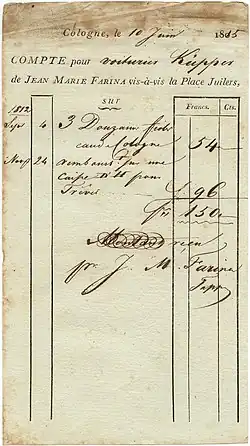 Cologne, le 10 Juin 1815
COMPTE pour voiturier Küpper
de JEAN MARIE FARINA vis-à-vis la Place Juilers,
sur Francs. Cts.
1812
Sept 4 3 Douzaine
eau de Cologne 54 -
Novb 24 Rembours sur une
caisse pour
Trèves f 96
fr 150 -
pr J. M. Farina